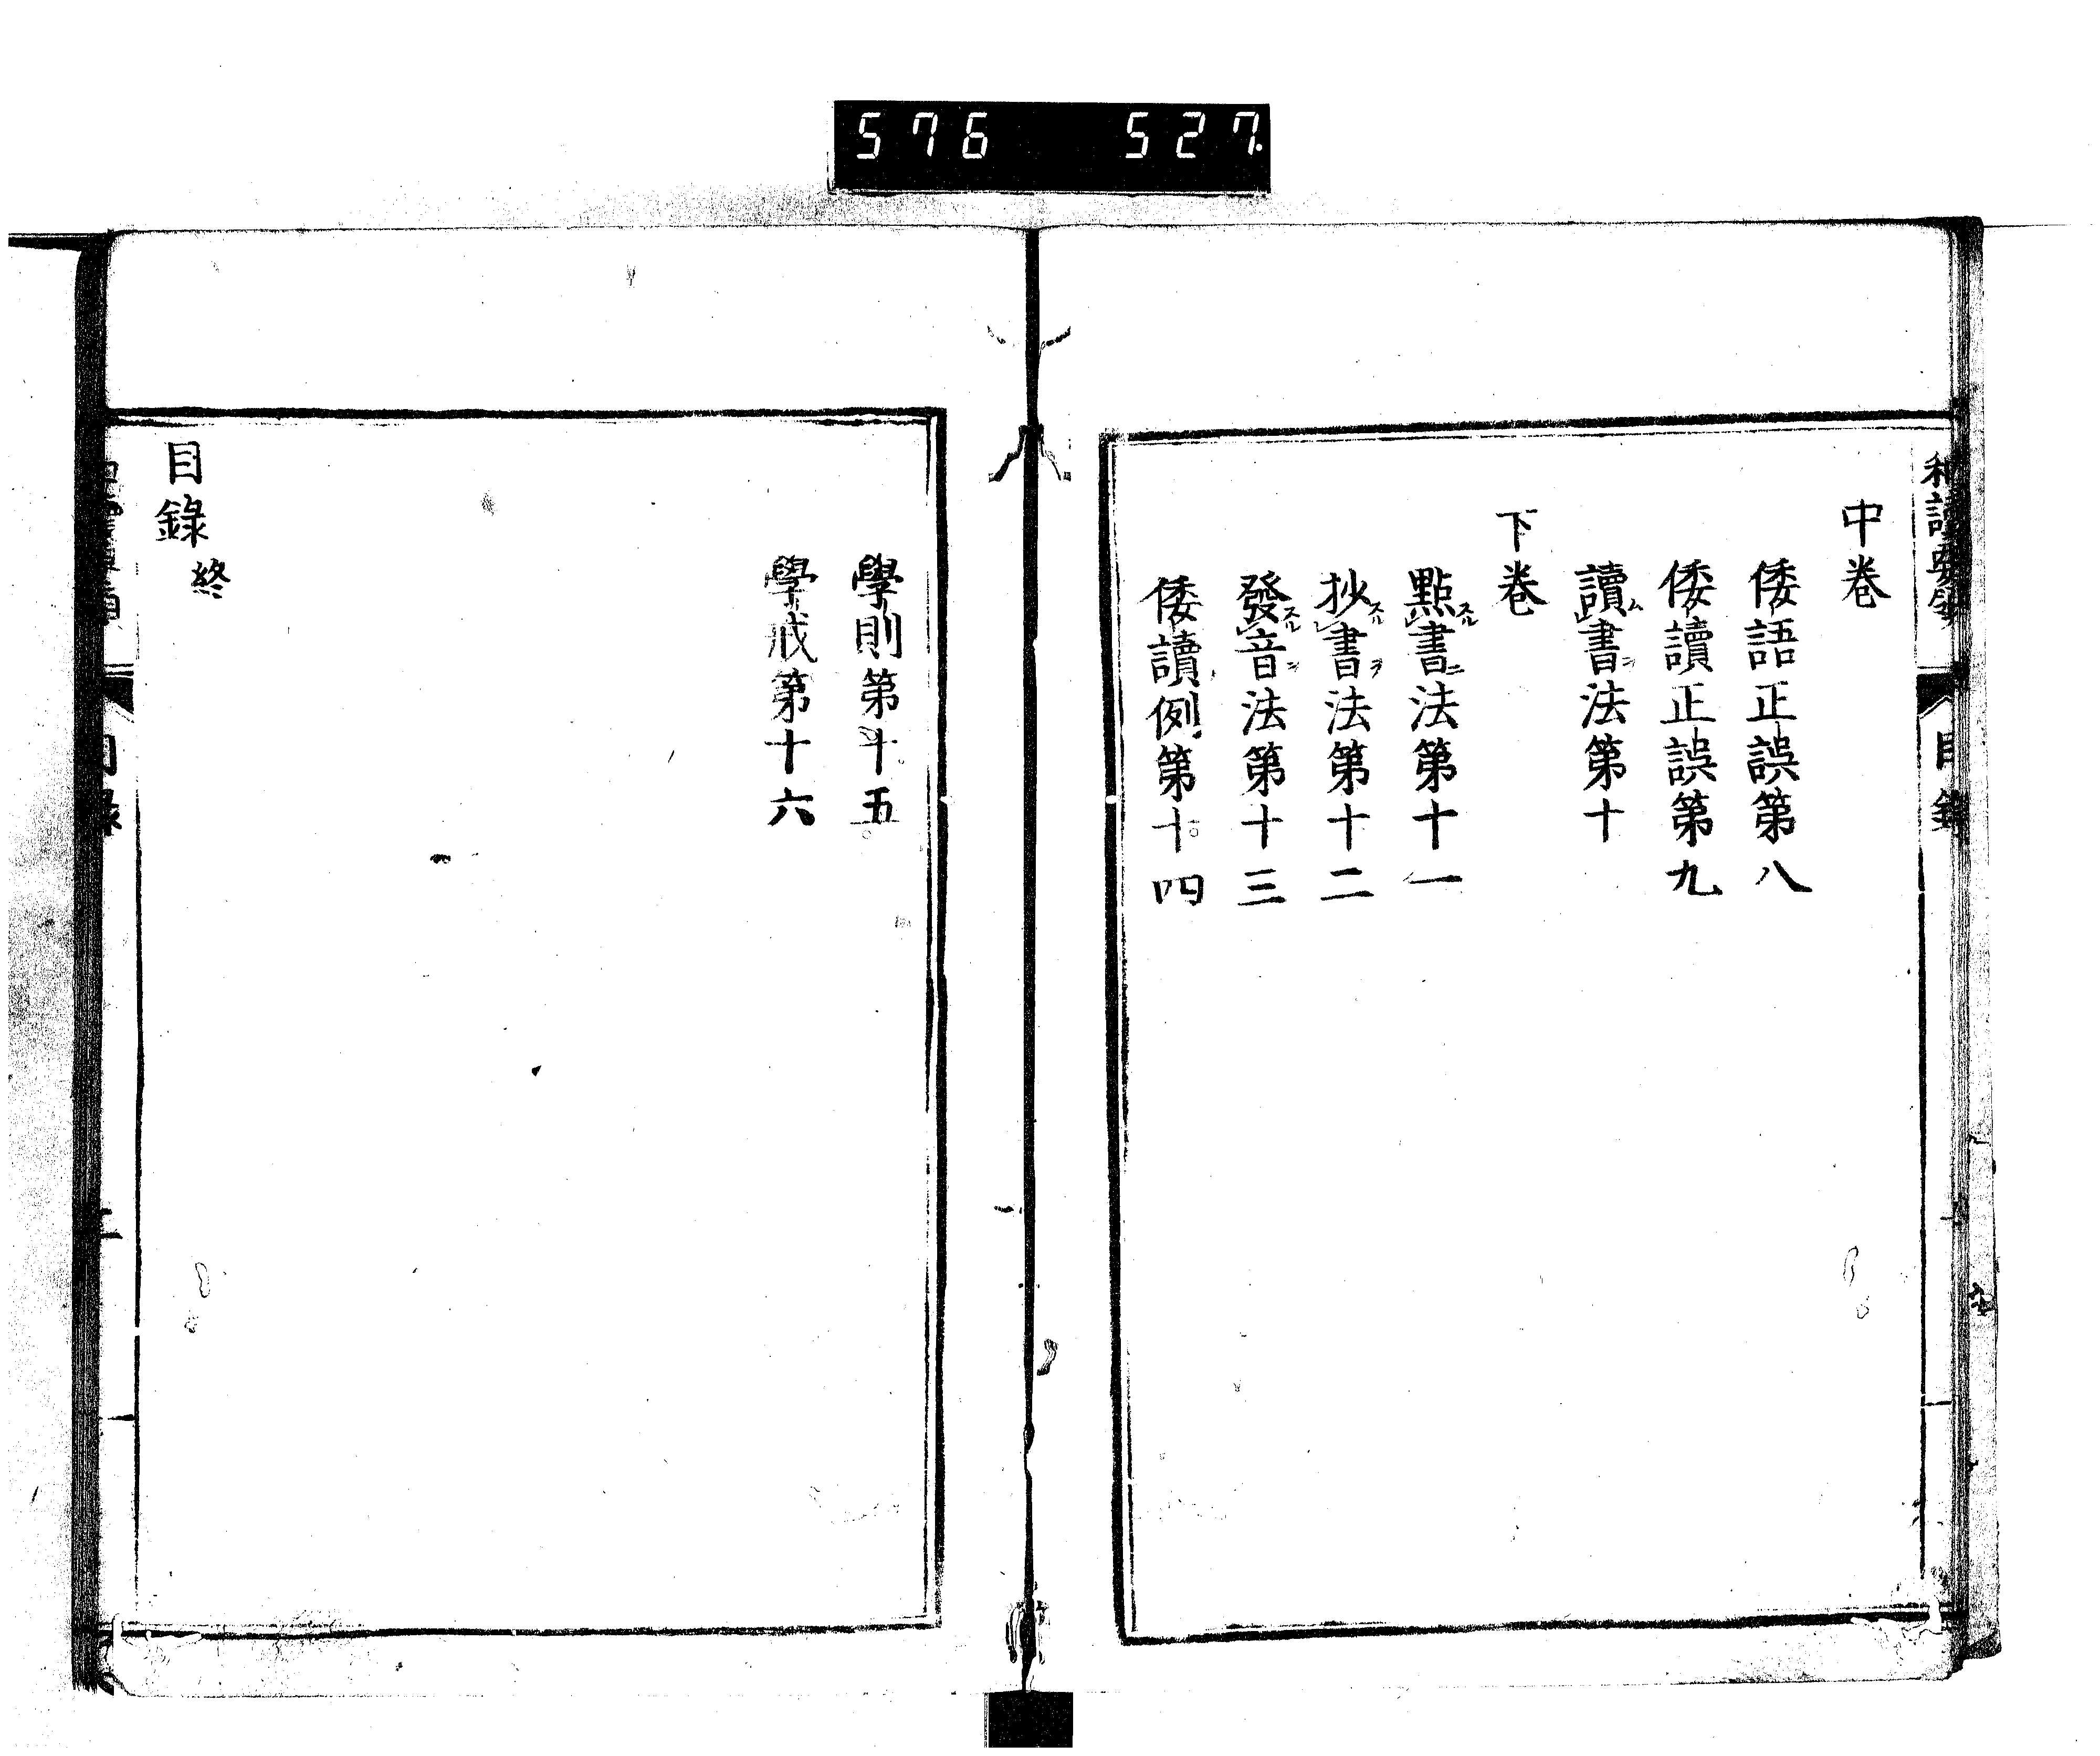 576 527.
和讀要領
目錄
中卷
倭語正誤第八
倭讀正誤第九
讀ム書ヲ法第十
下卷
點スル書ニ法第十一
抄スル書ヲ法第十二
發スル音ヲ法第十三
倭讀例第十四
學則第十五
學戒第十六
目錄終
目錄